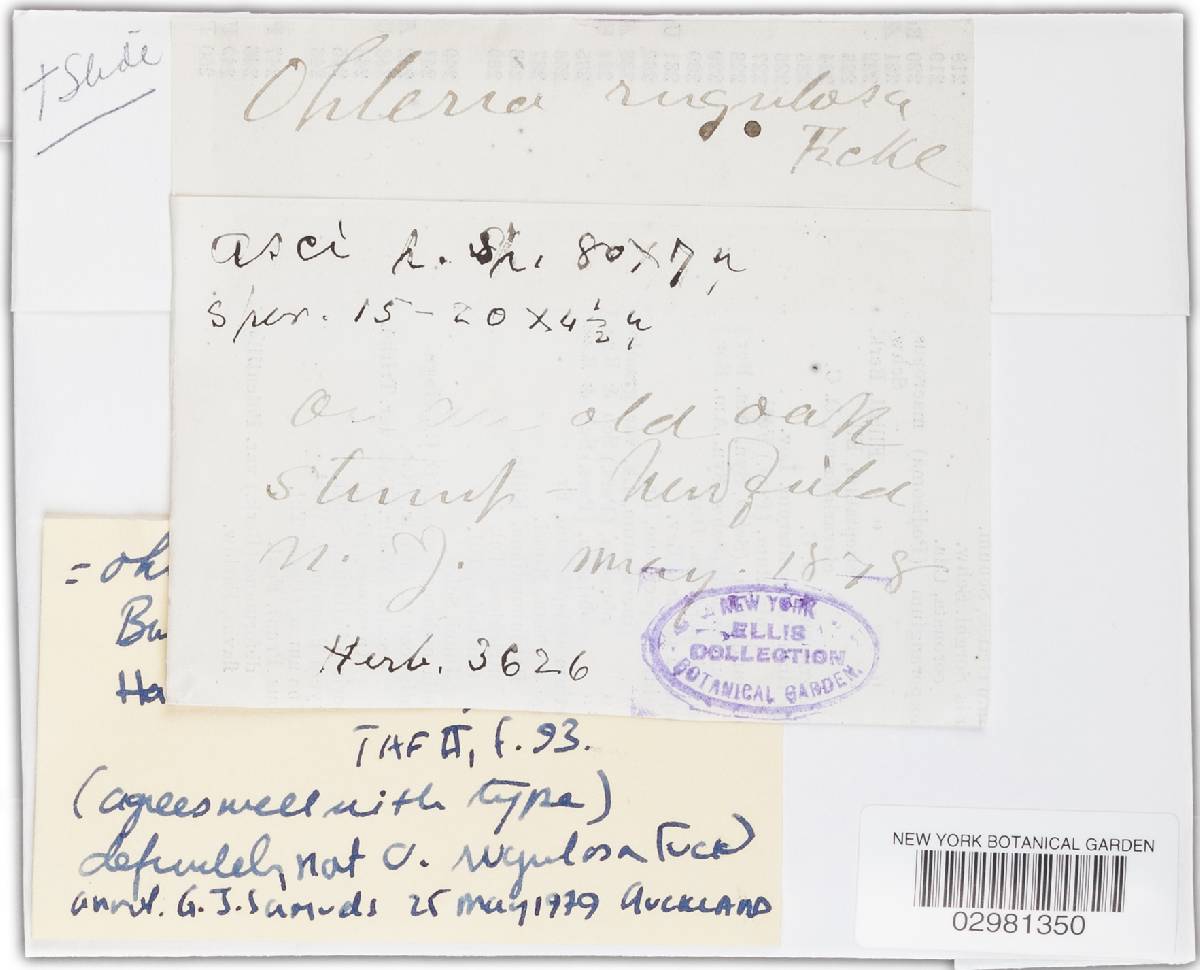 + Slide
Ohleria rugulosa
Fckl
asci p. sp. 80 x 7 µ
Sper. 15 - 20 x 4 ½ µ
On an old oak
stump - Newfield
N. J. May. 1878
Herb. 3626
NEW YORK
ELLIS
COLLECTION
BOTANICAL GARDEN.
= Oh
Bu
Ha
f. 93.
(agrees well with type)
definitely not O. rugulosa Fuck)
annot. G. J. Samuels 25 May 1979 AUCKLAND
NEW YORK BOTANICAL GARDEN
02981350